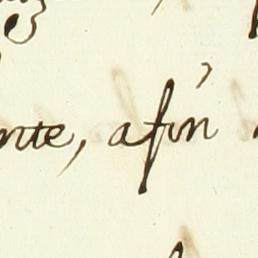 nte, afin